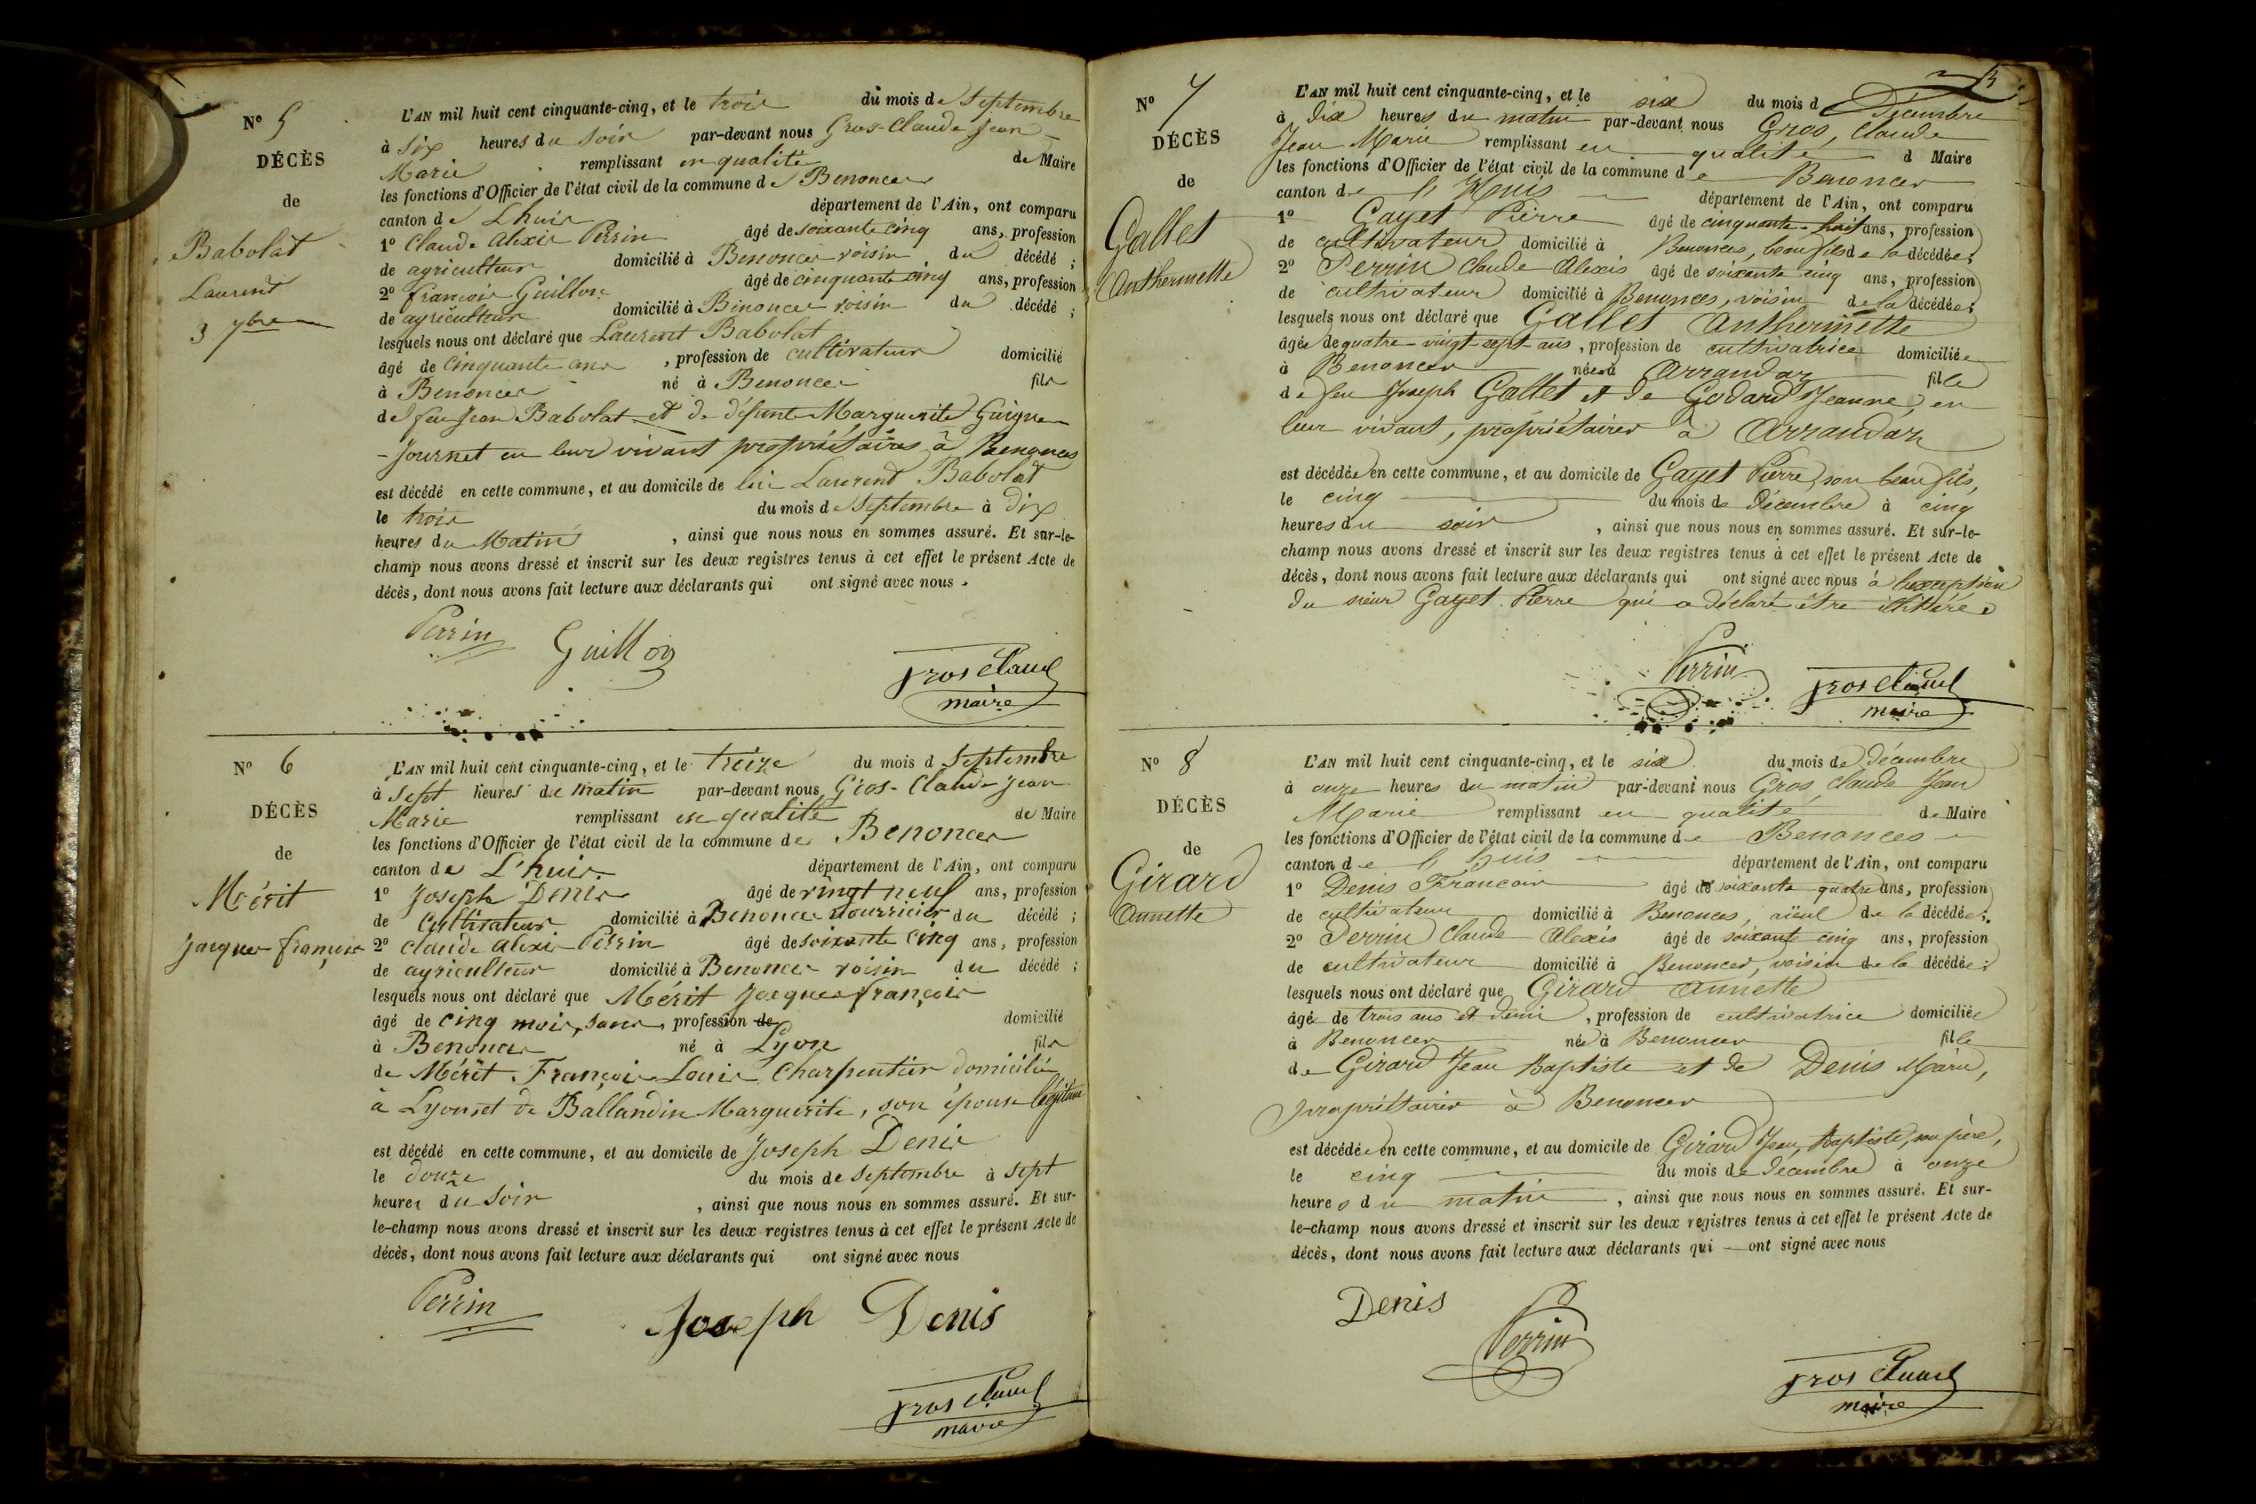 N° 5
DÉCÈS
de
Babolat
Laurent
3 7bre
L'AN mil huit cent cinquante-cinq, et le trois du mois de Septembre
à Six heures du Soir par-devant nous Gros-Claude Jean
Marie remplissant en qualité de Maire
les fonctions d'Officier de l'état civil de la commune de Benonces
canton de Lhuis département de l'Ain, ont comparu
1° Claude Alexis Perrin âgé de soixante cinq ans, profession
de agriculteur domicilié à Benonces voisin du décédé ;
2° françois Guillon âgé de cinquante cinq ans, profession
de agriculteur domicilié à Binonces voisin du décédé ;
lesquels nous ont déclaré que Laurent Babolat
âgé de cinquante ans , profession de cultivateur domicilié
à Benonces né à Benonces fils
de feu Jean Babolat et de défunte Marguerite Guigue
-Journet en leur vivant propriétaires à Benonces
est décédé en cette commune, et au domicile de lui Laurent Babolat
le trois du mois de Septembre à Dix
heures du Matin , ainsi que nous nous en sommes assuré. Et sur-le-
champ nous avons dressé et inscrit sur les deux registres tenus à cet effet le présent Acte de
décès, dont nous avons fait lecture aux déclarants qui ont signé avec nous.
Perrin Guillon
gros Claud
maire
N° 6
DÉCÈS
de
Mérit
Jacques françois
L'AN mil huit cent cinquante-cinq, et le treize du mois d Septembre
à Sept heures de matin par-devant nous Gros-Claude Jean
Marie remplissant en qualité de Maire
les fonctions d'Officier de l'état civil de la commune de Benonces
canton de L'huis département de l'Ain, ont comparu
1° Joseph Denis âgé de vingt neuf ans, profession
de Cultivateur domicilié à Benonces nourricier du décédé ;
2° Claude Alexis Perrin âgé de soixante cinq ans, profession
de agriculteur domicilié à Benonces voisin du décédé ;
lesquels nous ont déclaré que Mérit Jacques françois
âgé de cinq mois, sans, profession de domicilié
à Benonces né à Lyon fils
de Mérit François Louis Charpentier domicilié
à Lyon et de Ballandin Marguerite, son épouse légitime
est décédé en cette commune, et au domicile de Joseph Denis
le douze du mois de Septembre à Sept
heures du Soir , ainsi que nous nous en sommes assuré. Et sur-
le-champ nous avons dressé et inscrit sur les deux registres tenus à cet effet le présent Acte de
décès, dont nous avons fait lecture aux déclarants qui ont signé avec nous
Perrin Joseph Denis
gros Claud
maire
N° 7
DÉCÈS
de
Gallet
Anthermette
L'AN mil huit cent cinquante-cinq, et le six du mois d Décembre
à Dix heures du matin par-devant nous Gros, Claude
Jean Marie remplissant en qualité d Maire
les fonctions d'Officier de l'état civil de la commune de Benonces
canton de l'Huis département de l'Ain, ont comparu
1° Gayet Pierre âgé de cinquante-huit ans, profession
de cultivateur domicilié à Benonces, beau fils de la décédée;
2° Perrin Claude Alexis âgé de soixante cinq ans, profession
de cultivateur domicilié à Benonces, voisin de la décédée;
lesquels nous ont déclaré que Gallet Anthermette
âgée de quatre-vingt-sept-ans, profession de cultivatrice domiciliée
à Benonces née à Arrandaz fille
de feu Joseph Gallet et de Godard Jeanne, en
leur vivant, propriétaires à Arrandaz
est décédée en cette commune, et au domicile de Gayet Pierre, son beau fils,
le cinq du mois de Décembre à cinq
heures du soir , ainsi que nous nous en sommes assuré. Et sur-le-
champ nous avons dressé et inscrit sur les deux registres tenus à cet effet le présent Acte de
décès, dont nous avons fait lecture aux déclarants qui ont signé avec nous à l'exception
du sieur Gayet Pierre qui a déclaré être illittéré.
Perrin gros Claud
maire
N° 8
DÉCÈS
de
Girard
Annette
L'AN mil huit cent cinquante-cinq, et le six du mois de Décembre
à onze heures du matin par-devant nous Gros, Claude Jean
Marie remplissant en qualité de Maire
les fonctions d'Officier de l'état civil de la commune de Benonces
canton de l'huis département de l'Ain, ont comparu
1° Denis Francois âgé de soixante quatre ans, profession
de cultivateur domicilié à Benonces, aïeul de la décédée;
2° Perrin Claude Alexis âgé de soixante cinq ans, profession
de cultivateur domicilié à Benonces, voisin de la décédée;
lesquels nous ont déclaré que Girard Annette
âgée de trois ans et demi , profession de cultivatrice domiciliée
à Benonces née à Benonces fille
de Girard Jean Baptiste et de Denis Marie,
propriétaires à Benonces
est décédée en cette commune, et au domicile de Girard Jean, Baptiste, son père,
le cinq du mois de Décembre à onze
heures du matin , ainsi que nous nous en sommes assuré. Et sur-
le-champ nous avons dressé et inscrit sur les deux registres tenus à cet effet le présent Acte de
décès, dont nous avons fait lecture aux déclarants qui — ont signé avec nous
Denis
Perrin
gros Claud
maire